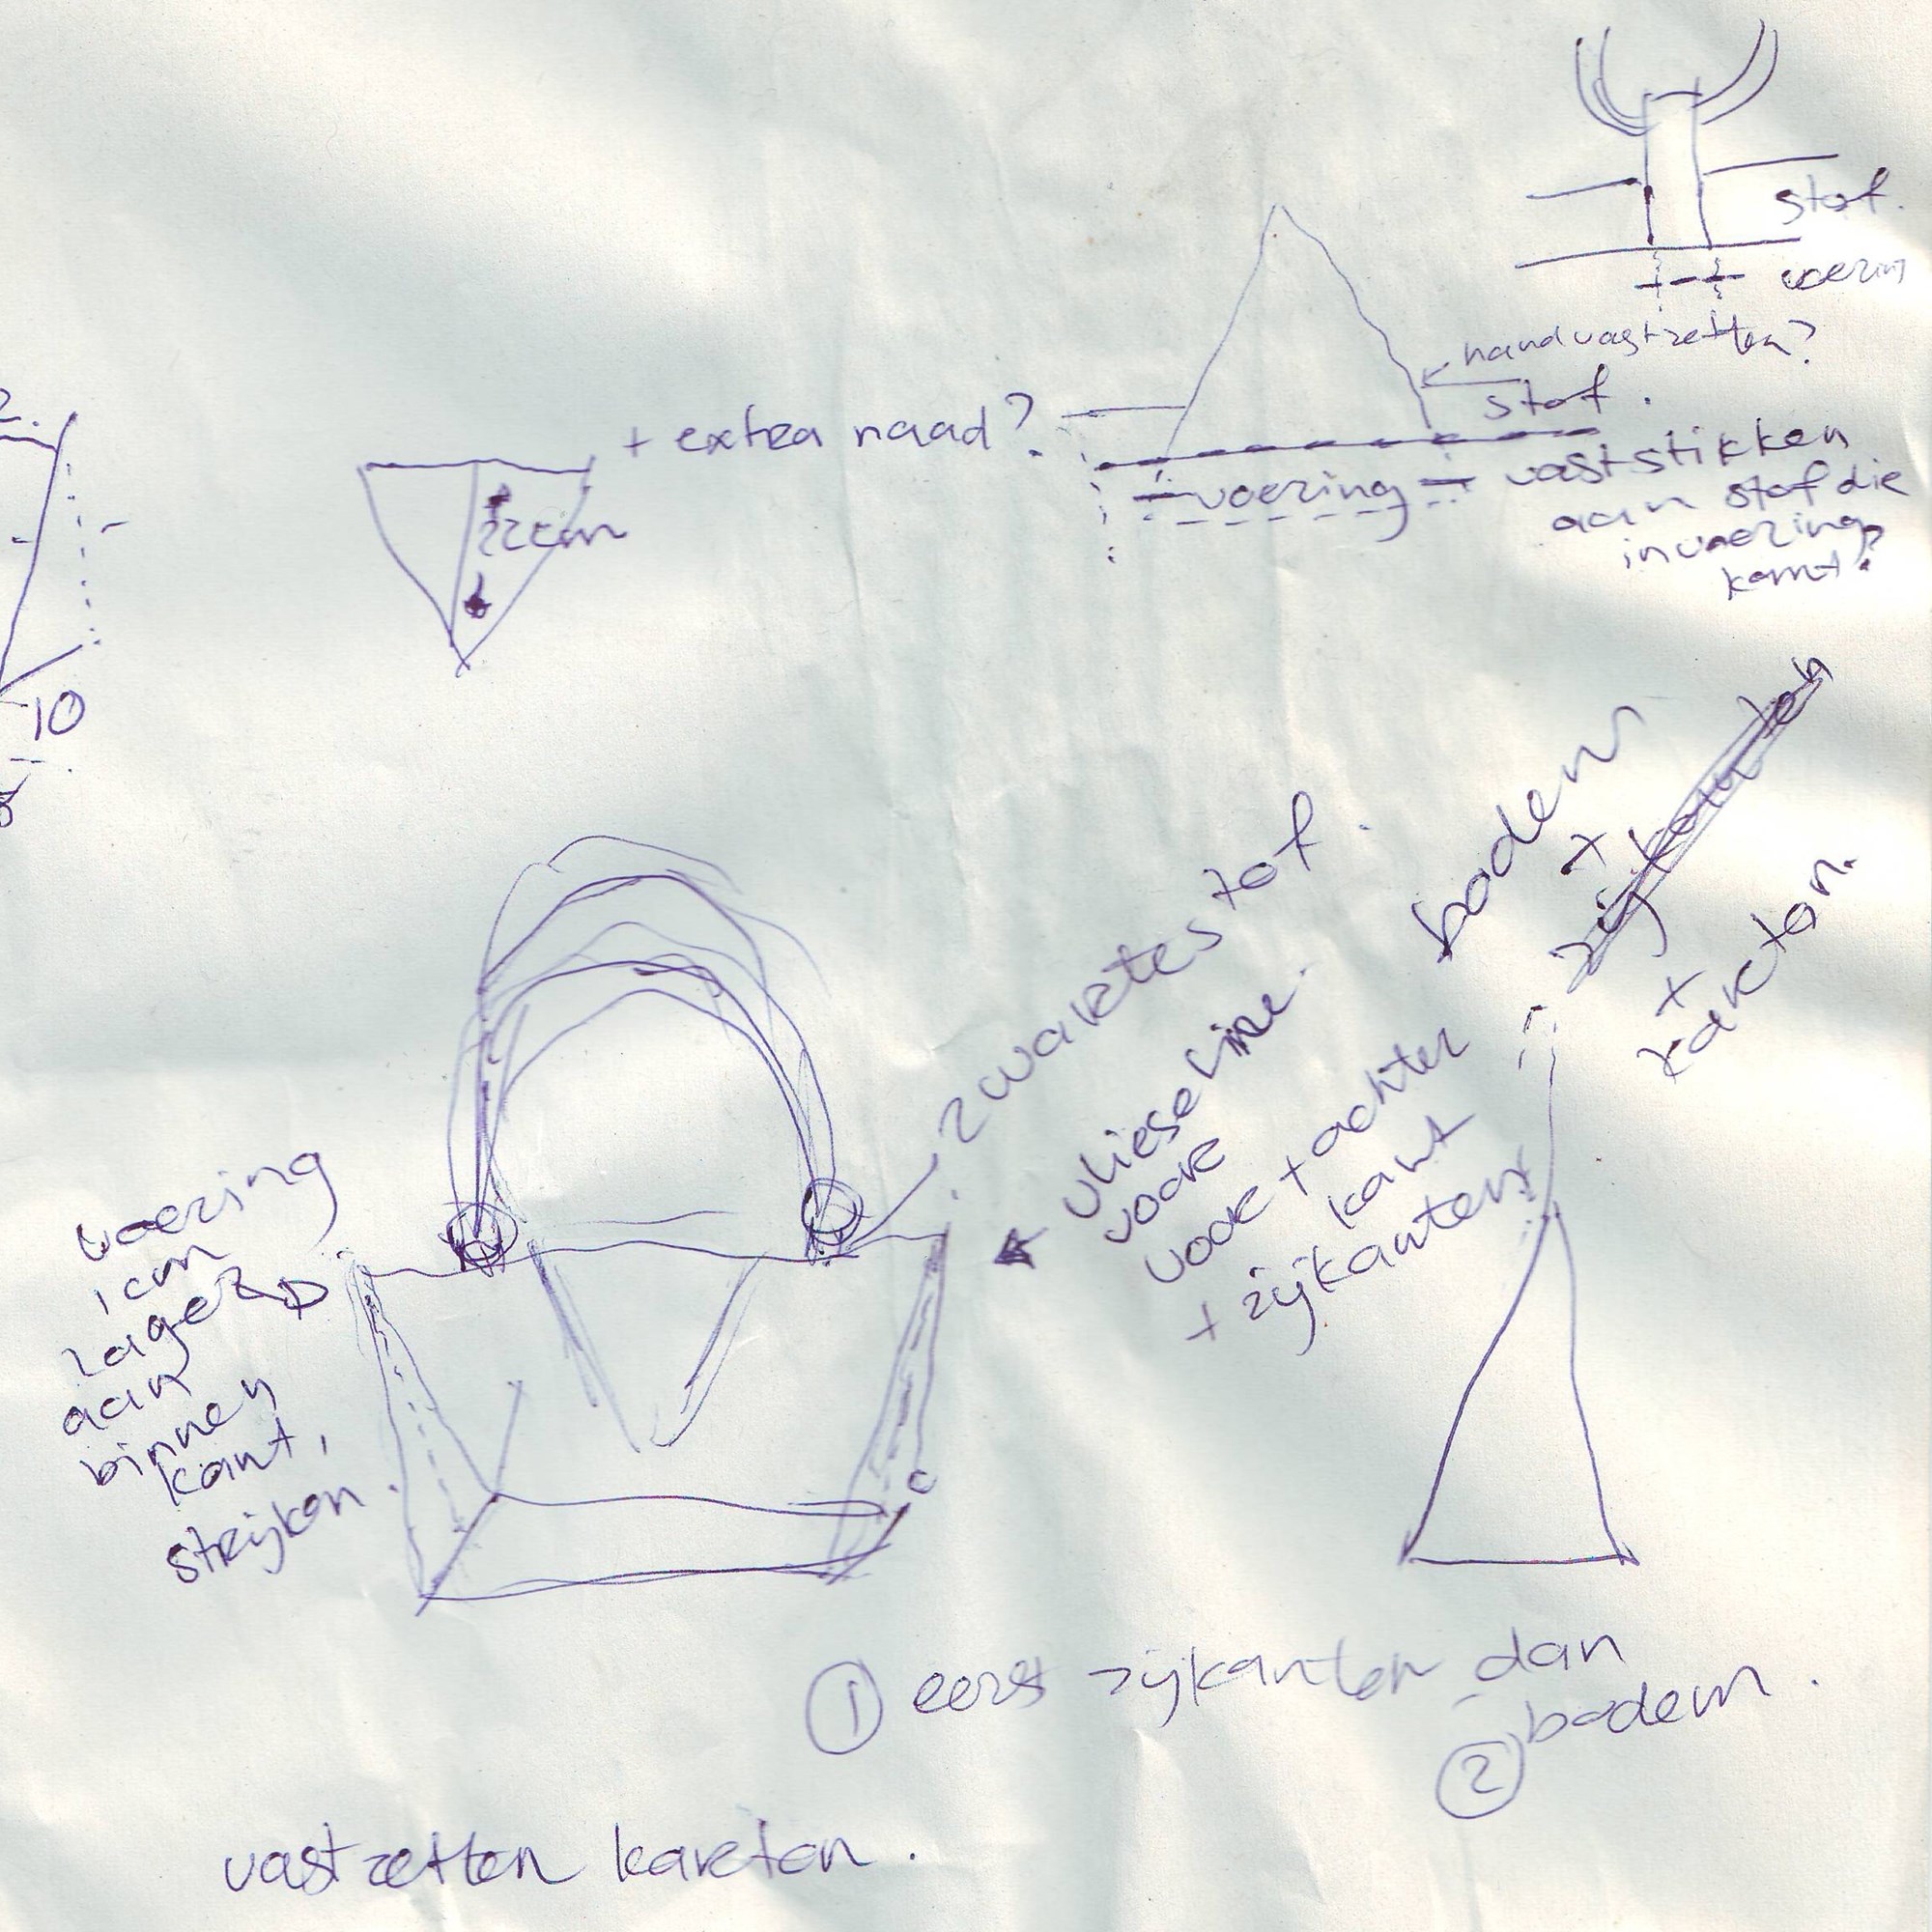 stof.
voering
hand vastzetten?
stof.
+ extra naad?
voering
vaststikken
aan stof die
in voering
komt?
22cm
2.
10
bodem
+
zijkanten
+
karton.
zwarte stof.
vlieseline
voor
voor + achter
kant
+ zijkanten
voering
1cm
lager
aan
binnen
kant,
strijken.
1 eerst zijkanten dan
2 bodem.
vastzetten karton.